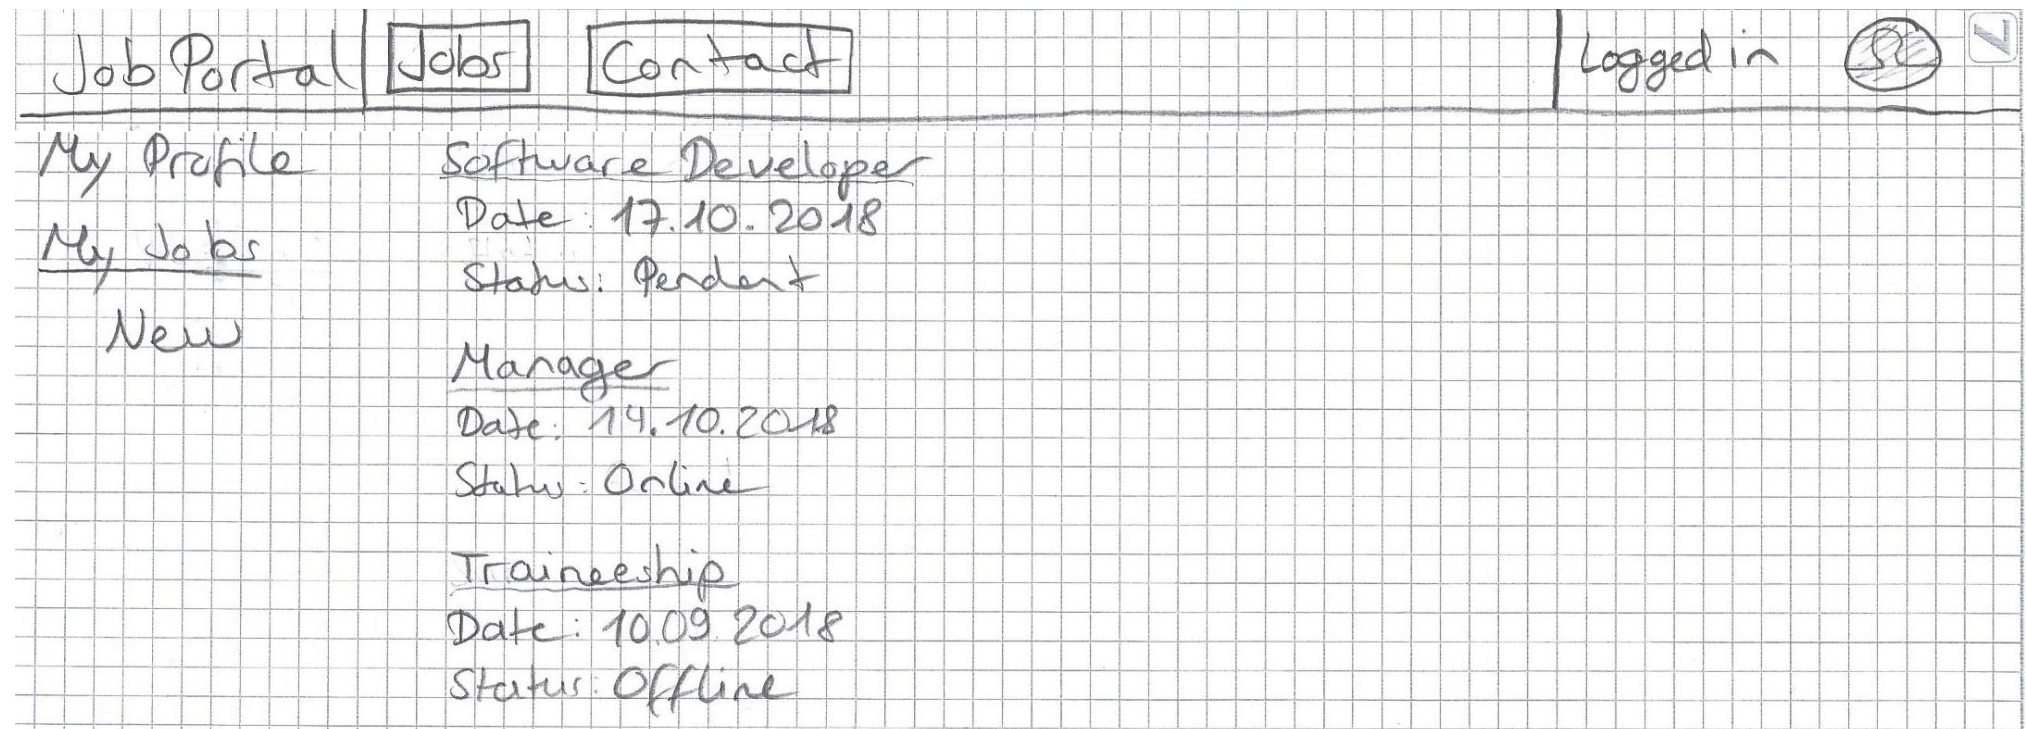 Job Portal Jobs Contact Logged in
My Profile
My Jobs
New
Software Developer
Date: 17.10.2018
Status: Pendent
Manager
Date: 14.10.2018
Status: Online
Traineeship
Date: 10.09.2018
Status: Offline